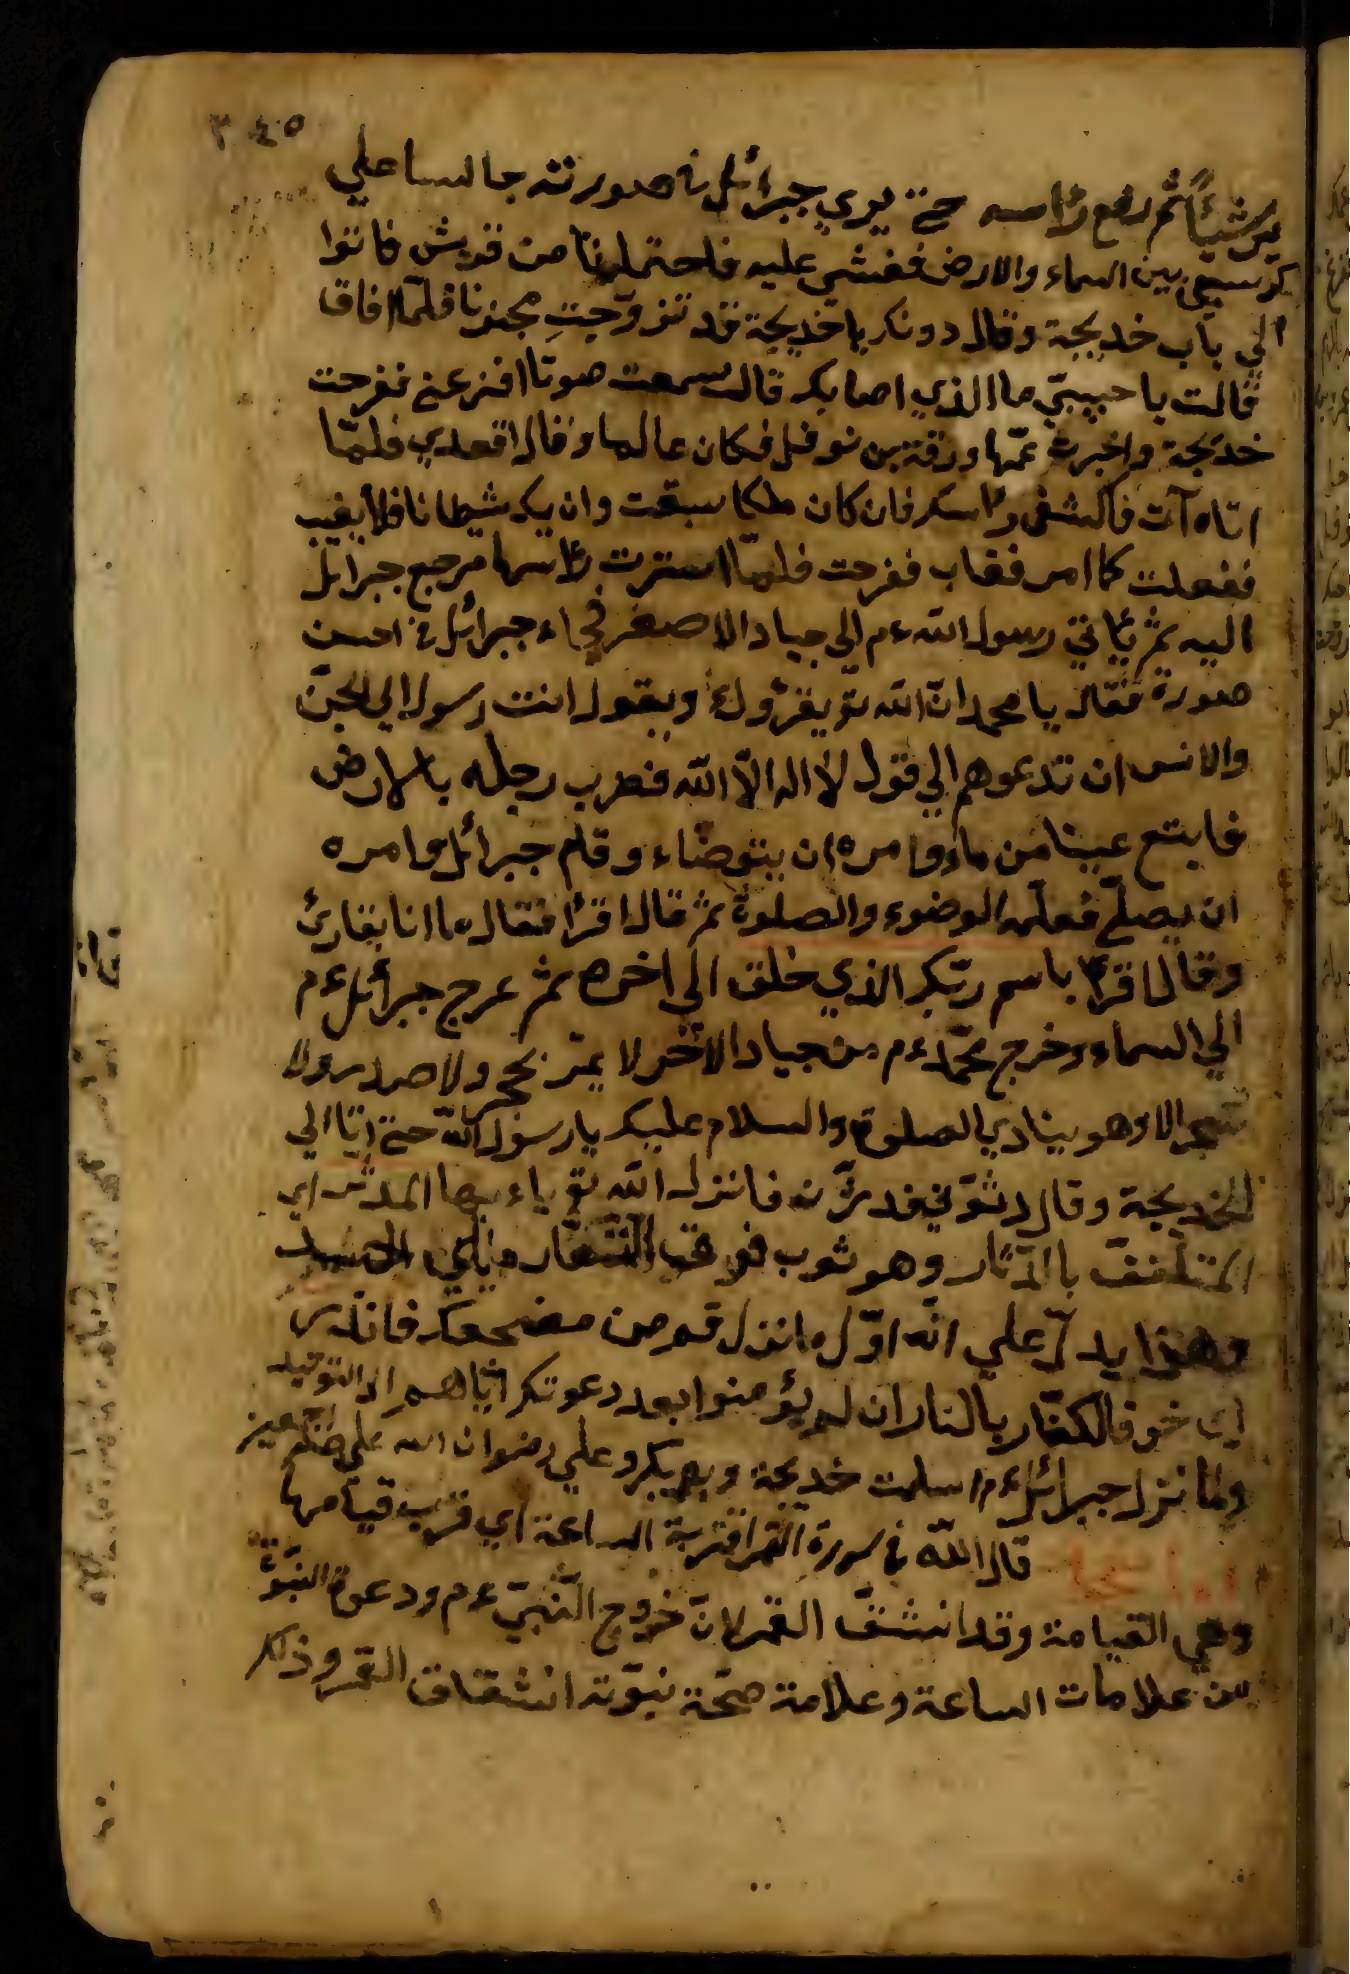 ٣٤٥
ير شيئًا ثم رفع رأسه حتى يري جبرائل في صورته جالسا علي
كرسيّ بين السماء والارض فغشي عليه فاحتملونا من قريش فاتوا
الي باب خديجة وقال دونك يا خديجة قد تزوّجتِ مجنونا فلمّا افاق
قالت يا حبيبيّ ما الذي اصابك قال سمعت صوتا افزعني ففرحت
خديجة واخبرت عمّها ورقة بن نوفل فكان عالما وقال اقعدي فلمّا
اتاه آت فاكشفي رأسك فان كان ملكا سبقت وان يك شيطانا فلا يغيب
ففعلت كما امر فغاب ففرحت فلمّا استترت رأسها مرجع جبرائل
اليه ثمّ يأتي رسول الله ءم الي جياد الاصغر فجاء جبرائل في احسن
صورة فقال يا محمد انّ الله تع يقرؤك ويقول انت رسول الي الجنّ
والانس ان تدعوهم الي قول لا اله الّا الله فضرب رجله بالارض
فابتع عينا من ماء وامره ان يتوضّاء وقام جبرائل وامره
ان يصلّي فعلّمه الوضوء والصلوة ثمّ قال اقرأ فقال ما انا بقارئ
وقال اقرأ باسم ربّك الذي خلق الي اخره ثمّ عرج جبرائل ءم
الي السماء وخرج محمّد ءم من جياد الاخر لا يمرّ بحجر ولا صدر ولا
شجر الا وهو ينادي الصلوة والسلام عليك يا رسول الله حتى اتا الي
الخديجة وقال دثّروني فدثّرته فانزل الله تع ياءيها المدثّر اي
المتلفّف بالدثار وهو ثوب فوق الشعار ويلي الجسد
وهذا يدلّ علي انّه اوّل ما نزل قم من مضجعك فانذر
اي خوف الكفّار بالنار ان لم يؤمنوا بعد دعوتك ايّاهم الي التوحيد
ولما نزل جبرائل ءم اسلمت خديجة وبو بكر وعلي رضوان الله عليهم اجمعين
قال الله في سورة القمر اقتربة الساعة اي قرب قيامها
وهي القيامة وقد انشقّ القمر لانّ خروج النّبيّ ءم ودعوة النبوّة
من علامات الساعة وعلامة صحّة نبوّته انشقاق القمر وذكر